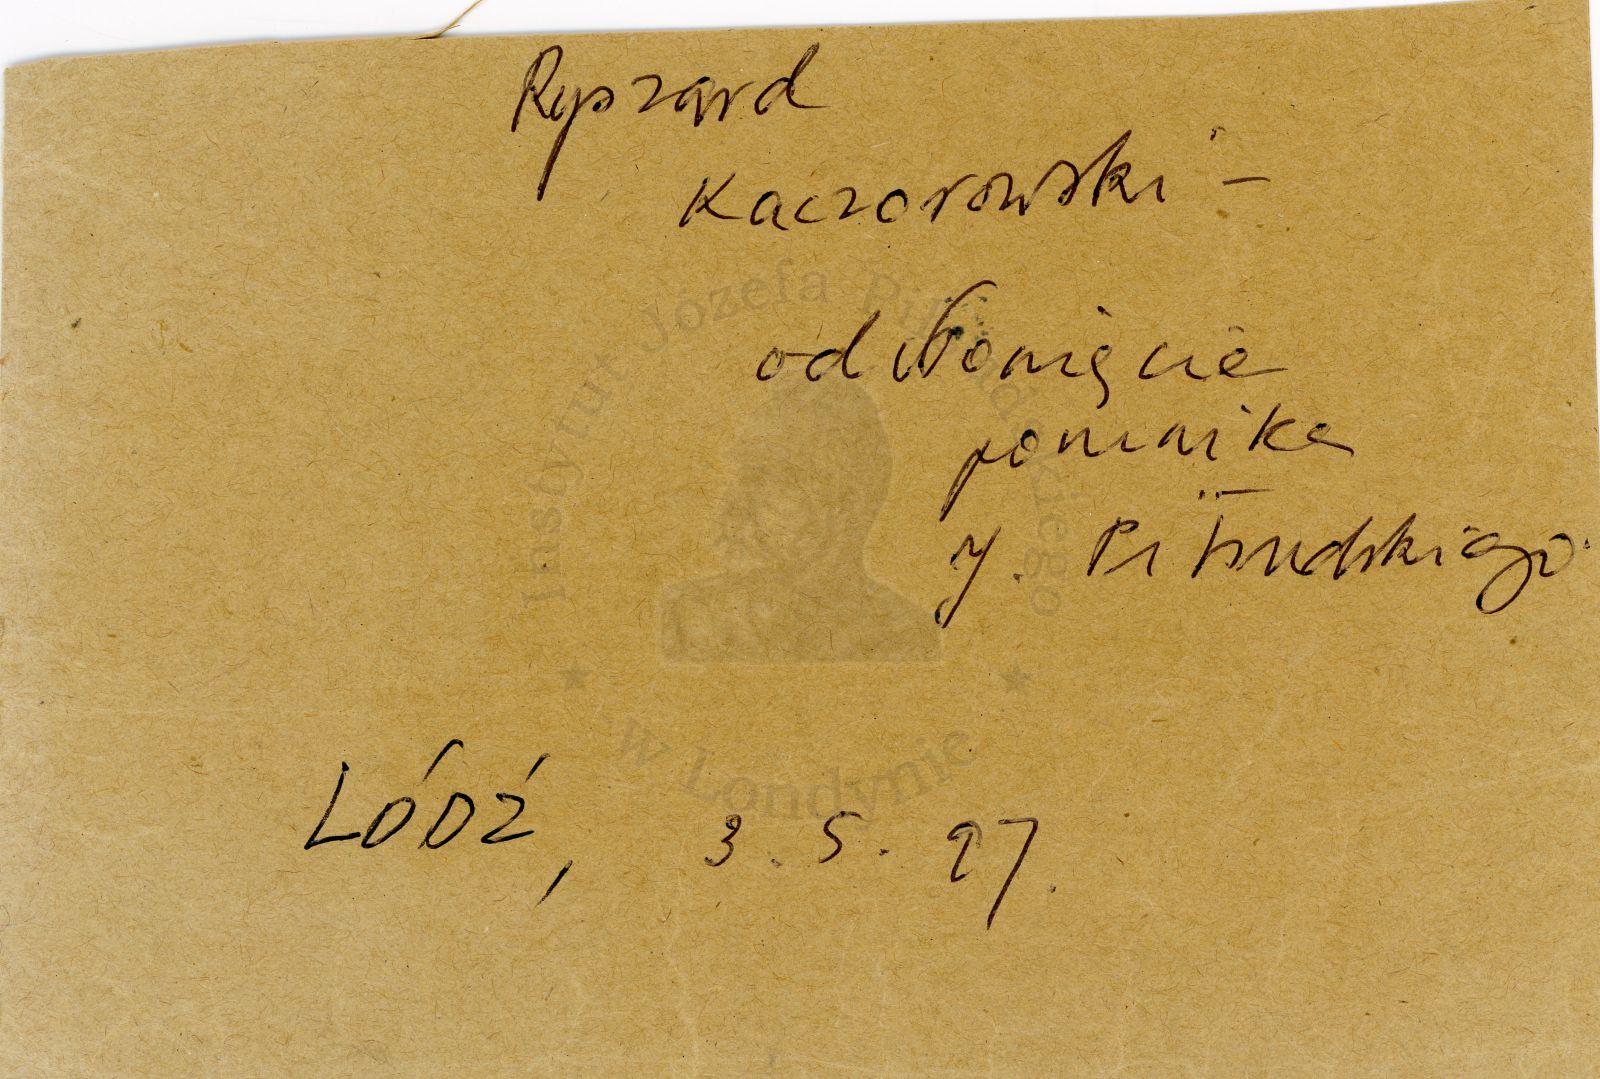 Ryszard
Kaczorowski –
odsłonięcie
pomnika
J. Piłsudskiego.
ŁÓDŹ, 3.5.97.
Instytut Józefa Piłsudskiego
w Londynie